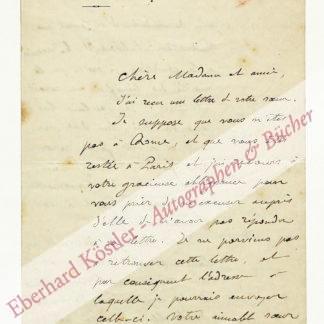 Chère Madame et amie,
J'ai reçu une lettre de votre sœur.
Je suppose que vous n'êtes
pas à Rome, et que vous
restée à Paris et j'ai recours à
votre gracieuse pour
vous prier de m'excuser auprès
d'elle de n'avoir pas répondu
à sa lettre. Je ne parviens pas
retrouver cette lettre, et
par conséquent l'adresse à
laquelle je pourrais envoyer
celle-ci. Votre aimable sœur
Eberhard Köstler - Autographen & Bücher